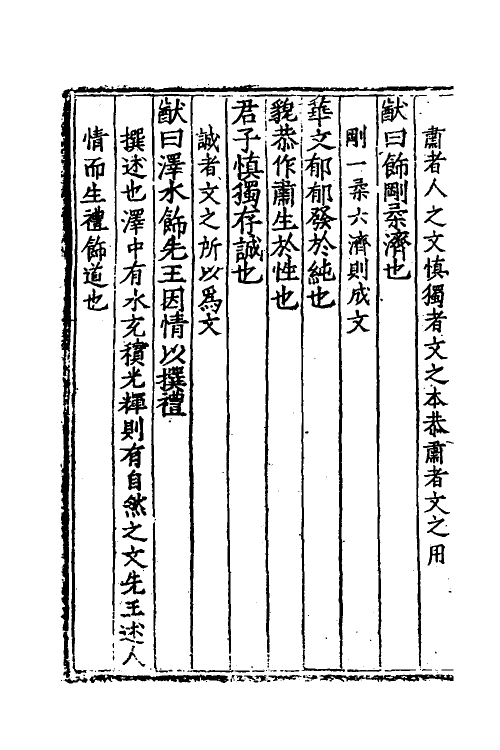 肅者人之文慎獨者文之本恭肅者文之用
猷曰飾剛柔濟也
剛一柔六濟則成文
華文郁郁發於純也
貌恭作肅生於性也
君子慎獨存誠也
誠者文之所以爲文
猷曰澤水飾先王因情以撰禮
撰述也澤中有水充積光輝則有自然之文先王述人
情而生禮飾道也